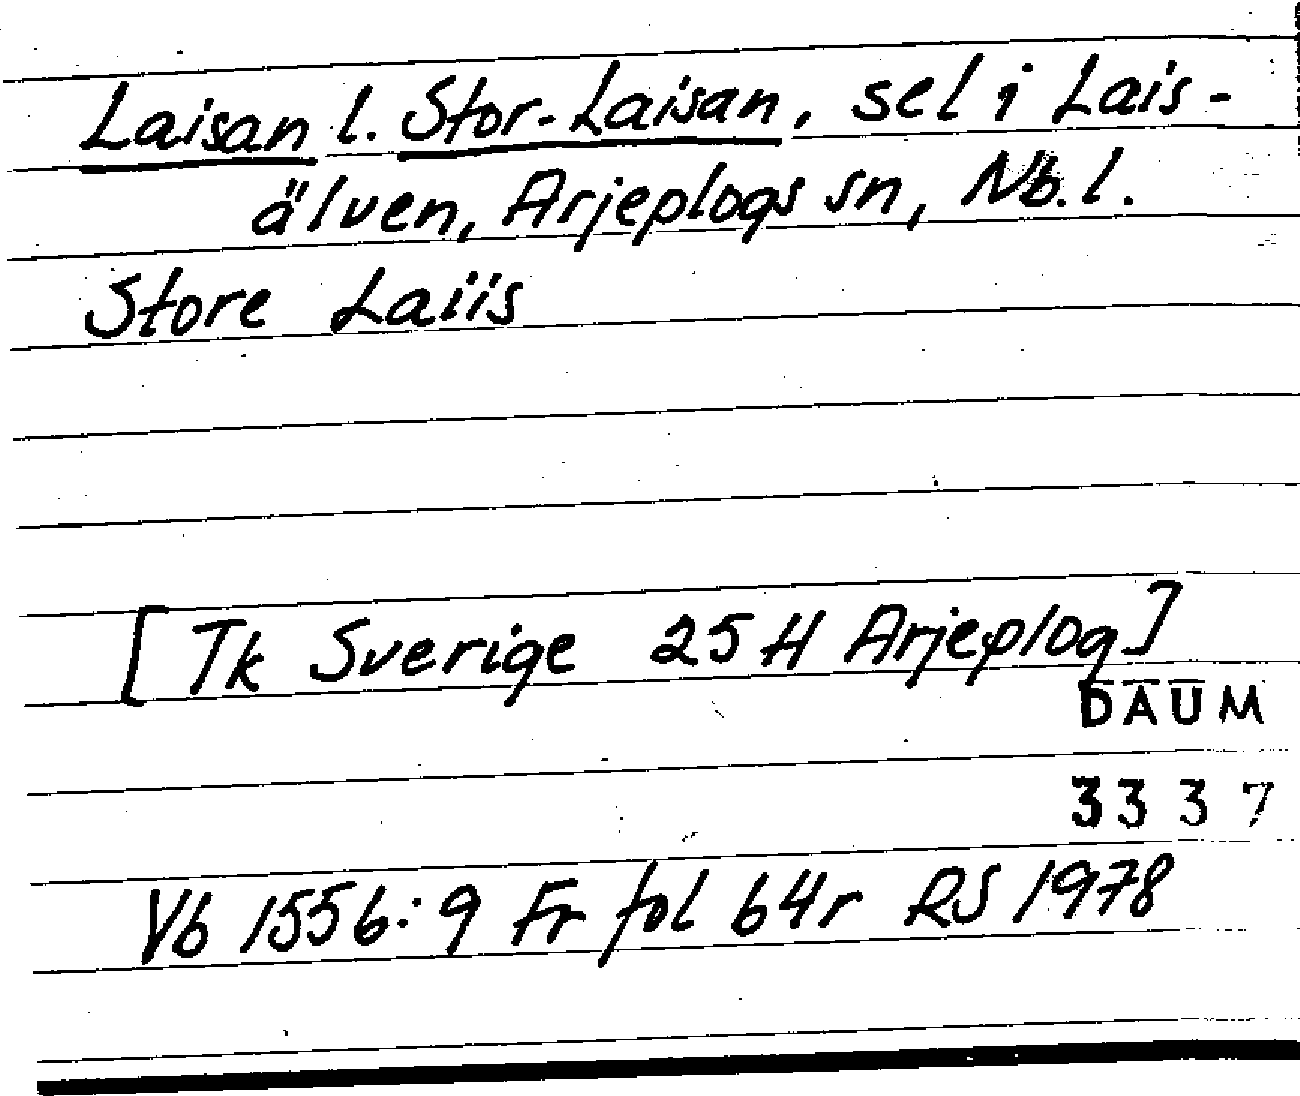 Laisan l. Stor-Laisan, sel i Lais-
älven, Arjeplogs sn, Nb.l.
Store Laiis
[Tk Sverige 25H Arjeplog]
DAUM
3337
Vb 1556:9 Fr fol 64r RS 1978